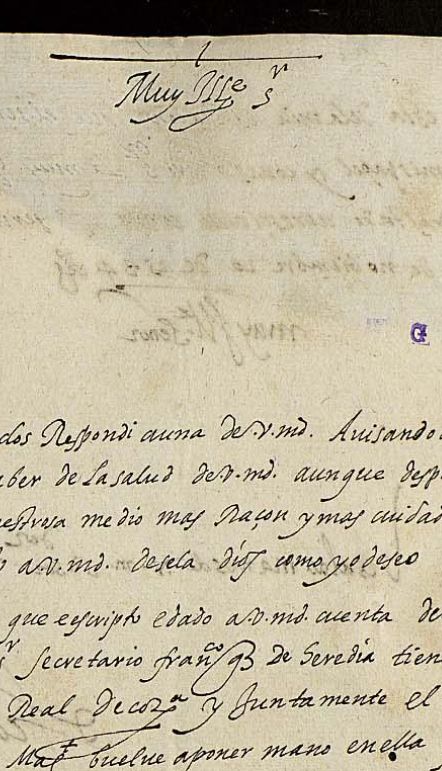 Muy Ille sr
G
dos Respondi a una de v. md. Auisando
aber de la salud de v. md. aunque desp
medio mas Raçon y mas cuidad
a v. md. desela dios como yo deseo
que e escripto e dado a v. md. cuenta de
sr secretario franco de Heredia tien
Real De coz.a y Juntamente el
Magt. buelue a poner mano en ella